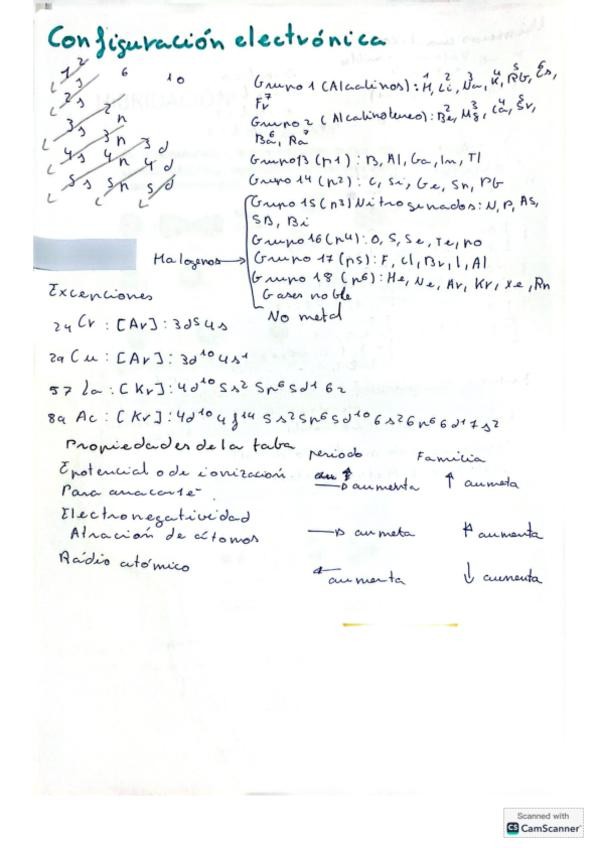 Configuración electrónica
1s 2 6 10
2s 2p
3s 3p 3d
4s 4p 4d
5s 5p 5d
Grupo 1 (Alcalinos): H, Li, Na, K, Rb, Cs,
Fr
Grupo 2 (Alcalinoterreo): Be, Mg, Ca, Sr,
Ba, Ra
Grupo 13 (p1): B, Al, Ga, In, Tl
Grupo 14 (p2): C, Si, Ge, Sn, Pb
Grupo 15 (p3) Nitrogenados: N, P, As,
SB, Bi
Grupo 16 (p4): O, S, Se, Te, po
Halogenos → Grupo 17 (p5): F, Cl, Br, I, At
Grupo 18 (p6): He, Ne, Ar, Kr, xe, Rn
Gases noble
No metal
Excepciones
24 Cr: [Ar]: 3d5 4s
29 Cu: [Ar]: 3d10 4s1
57 la: [Kr]: 4d10 5s2 5p6 5d1 62
89 Ac: [Kr]: 4d10 4f14 5s2 5p6 5d10 6s2 6p6 6d1 7s2
Propiedades de la taba periodo Familia
E potencial o de ionización → aumenta ↑ aumeta
Para anacarle-
Electronegatividad
Atración de átomos → aumeta ↑ aumenta
Rádio atómico ← aumenta ↓ aumenta
Scanned with
CS CamScanner